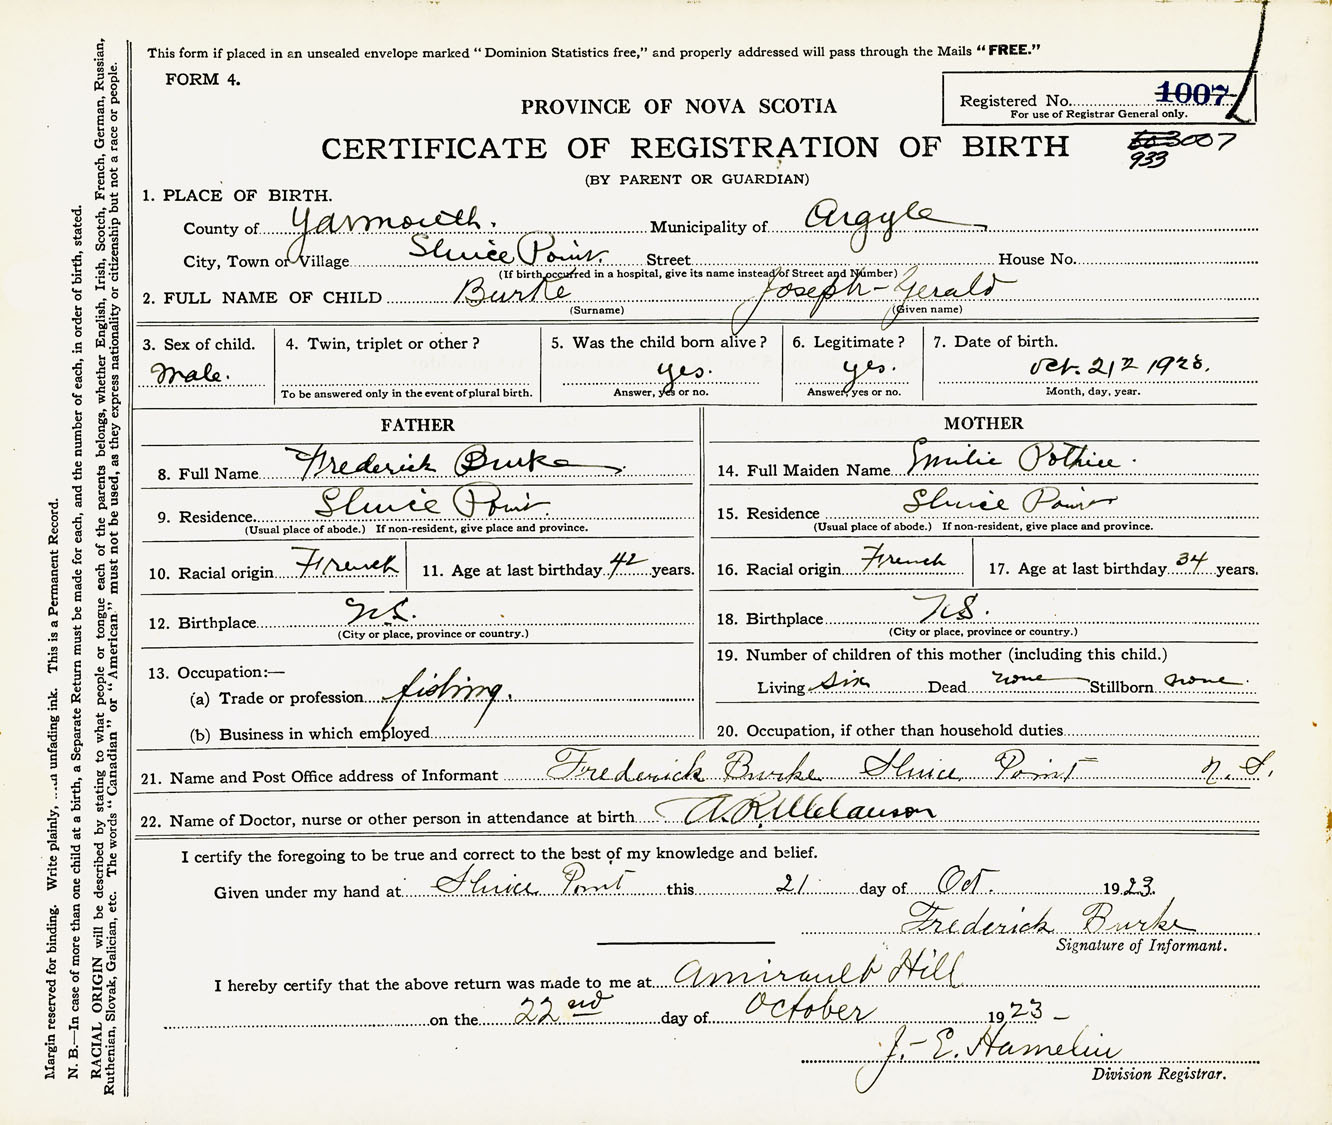 This form if placed in an unsealed envelope marked "Dominion Statistics free," and properly addressed will pass through the Mails "FREE."
FORM 4.
Registered No. 1007
For use of Registrar General only.
PROVINCE OF NOVA SCOTIA
CERTIFICATE OF REGISTRATION OF BIRTH
3007
933
(BY PARENT OR GUARDIAN)
1. PLACE OF BIRTH.
County of Yarmouth. Municipality of Argyle
City, Town or Village Sluice Point. Street House No.
(If birth occurred in a hospital, give its name instead of Street and Number)
2. FULL NAME OF CHILD Burke Joseph-Gerald
(Surname) (Given name)
3. Sex of child. 4. Twin, triplet or other? 5. Was the child born alive? 6. Legitimate? 7. Date of birth.
Male. yes. yes. Oct. 21
To be answered only in the event of plural birth. Answer, yes or no. Answer, yes or no. Month, day, year.
FATHER
8. Full Name Frederick Burke
9. Residence Sluice Point.
(Usual place of abode.) If non-resident, give place and province.
10. Racial origin French 11. Age at last birthday 42 years.
12. Birthplace N.S.
(City or place, province or country.)
13. Occupation:—
(a) Trade or profession fishing.
(b) Business in which employed
MOTHER
14. Full Maiden Name Emilie Pothier.
15. Residence Sluice Point
(Usual place of abode.) If non-resident, give place and province.
16. Racial origin French 17. Age at last birthday 34 years.
18. Birthplace N.S.
(City or place, province or country.)
19. Number of children of this mother (including this child.)
Living six Dead none Stillborn none.
20. Occupation, if other than household duties
21. Name and Post Office address of Informant Frederick Burke Sluice Point N.S.
22. Name of Doctor, nurse or other person in attendance at birth
I certify the foregoing to be true and correct to the best of my knowledge and belief.
Given under my hand at Sluice Point this 21 day of Oct. 1923.
Frederick Burke
Signature of Informant.
I hereby certify that the above return was made to me at Amirault Hill
on the 22nd day of October 1923-
J.-E. Hamelin
Division Registrar.
Margin reserved for binding. Write plainly, unfading ink. This is a Permanent Record.
N. B.—In case of more than one child at a birth, a Separate Return must be made for each, and the number of each, in order of birth, stated.
RACIAL ORIGIN will be described by stating to what people or tongue each of the parents belongs, whether English, Irish, Scotch, French, German, Russian,
Ruthenian, Slovak, Galician, etc. The words "Canadian" or "American" must not be used, as they express nationality or citizenship but not a race or people.